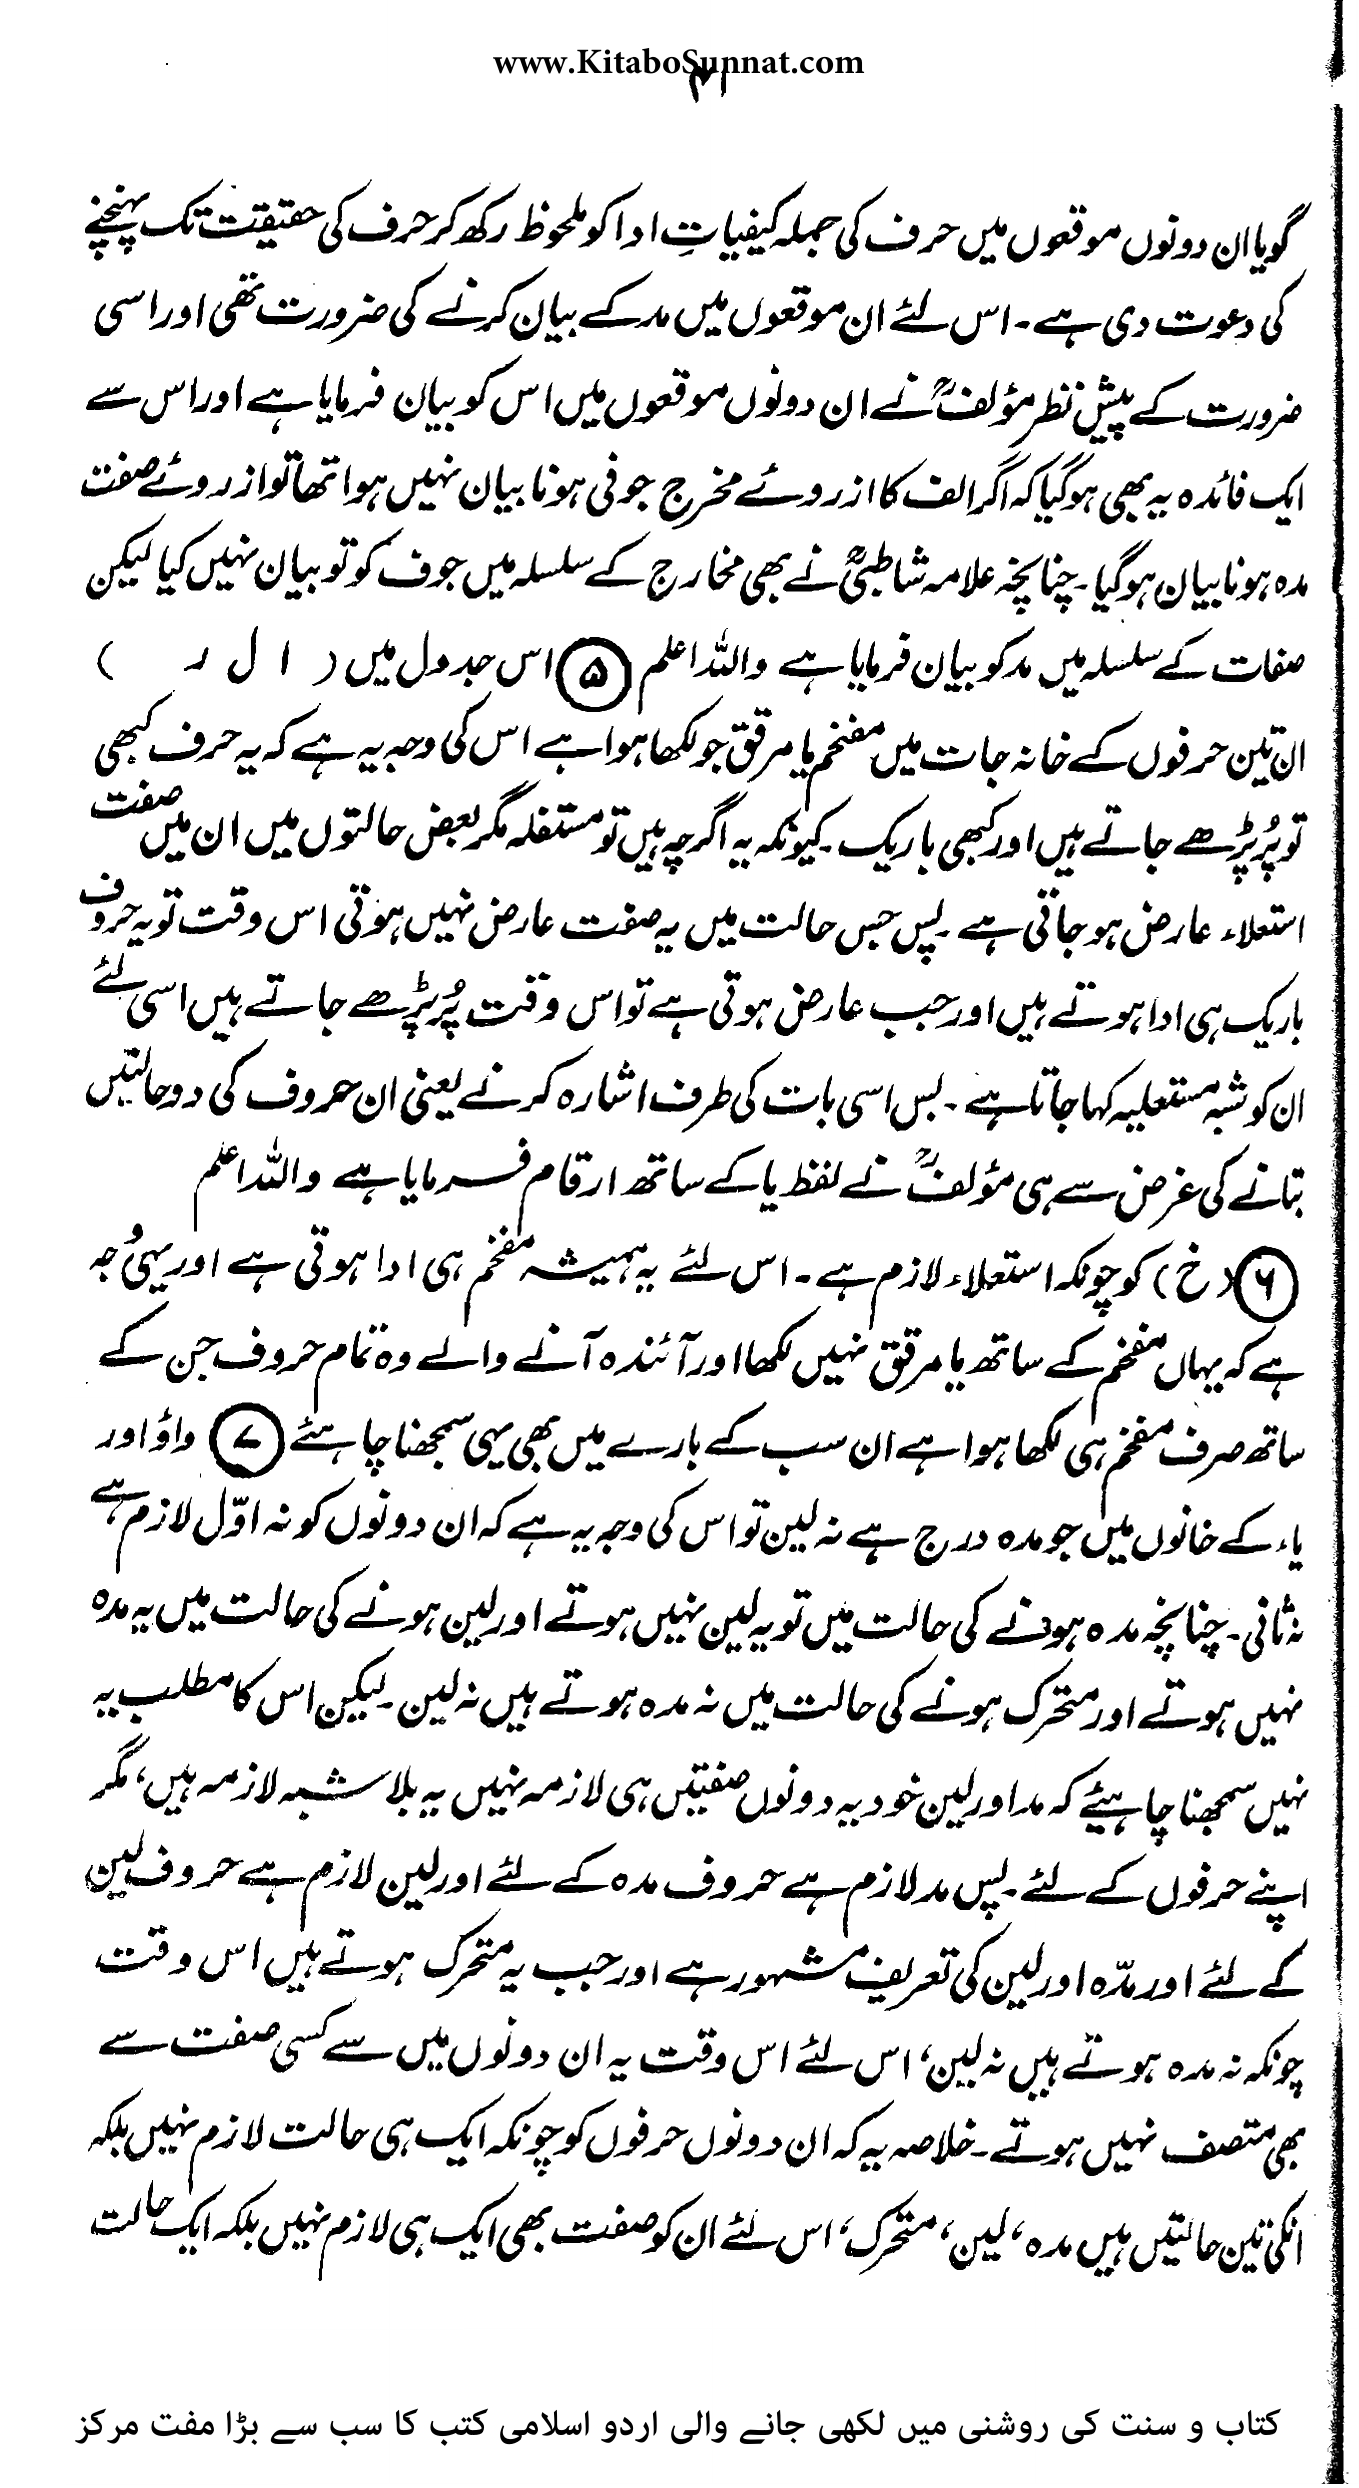 www.KitaboSunnat.com
۴۱
گویا ان دونوں موقعوں میں حرف کی جملہ کیفیاتِ ادا کو ملحوظ رکھ کر حرف کی حقیقت تک پہنچنے
کی دعوت دی ہے۔ اس لئے ان موقعوں میں مد کے بیان کرنے کی ضرورت تھی اور اسی
ضرورت کے پیشِ نظر مؤلفؒ نے ان دونوں موقعوں میں اس کو بیان فرمایا ہے اور اس سے
ایک فائدہ یہ بھی ہوگیا کہ اگر الف کا از روئے مخرج جوفی ہونا بیان نہیں ہوا تھا تو از روئے صفت
مدہ ہونا بیان ہوگیا۔ چنانچہ علامہ شاطبیؒ نے بھی مخارج کے سلسلہ میں جوف کو تو بیان نہیں کیا لیکن
صفات کے سلسلہ میں مد کو بیان فرمایا ہے واللہ اعلم ۵ اس جدول میں ( ا ل ر )
ان تین حرفوں کے خانہ جات میں مفخم یا مرقق جو لکھا ہوا ہے اس کی وجہ یہ ہے کہ یہ حرف کبھی
تو پُر پڑھے جاتے ہیں اور کبھی باریک۔ کیونکہ یہ اگرچہ ہیں تو مستفلہ مگر بعض حالتوں میں ان میں صفت
استعلاء عارض ہو جاتی ہے۔ پس جس حالت میں یہ صفت عارض نہیں ہوتی اس وقت تو یہ حروف
باریک ہی ادا ہوتے ہیں اور جب عارض ہوتی ہے تو اس وقت پُر پڑھے جاتے ہیں اسی لئے
ان کو شبہ مستعلیہ کہا جاتا ہے۔ بس اسی بات کی طرف اشارہ کرنے یعنی ان حروف کی دو حالتیں
بتانے کی غرض سے ہی مؤلفؒ نے لفظ یا کے ساتھ ارقام فرمایا ہے واللہ اعلم
۶ (خ) کو چونکہ استعلاء لازم ہے۔ اس لئے یہ ہمیشہ مفخم ہی ادا ہوتی ہے اور یہی وجہ
ہے کہ یہاں مفخم کے ساتھ یا مرقق نہیں لکھا اور آئندہ آنے والے وہ تمام حروف جن کے
ساتھ صرف مفخم ہی لکھا ہوا ہے ان سب کے بارے میں بھی یہی سمجھنا چاہئے ۷ واؤ اور
یاء کے خانوں میں جو مدہ درج ہے نہ لین تو اس کی وجہ یہ ہے کہ ان دونوں کو نہ اوّل لازم ہے
نہ ثانی۔ چنانچہ مدہ ہونے کی حالت میں تو یہ لین نہیں ہوتے اور لین ہونے کی حالت میں یہ مدہ
نہیں ہوتے اور متحرک ہونے کی حالت میں نہ مدہ ہوتے ہیں نہ لین۔ لیکن اس کا مطلب یہ
نہیں سمجھنا چاہئیے کہ مد اور لین خود یہ دونوں صفتیں ہی لازمہ نہیں یہ بلا شبہ لازمہ ہیں، مگر
اپنے حرفوں کے لئے۔ پس مد لازم ہے حروف مدہ کے لئے اور لین لازم ہے حروف لین
کے لئے اور مدّہ اور لین کی تعریف مشہور ہے اور جب یہ متحرک ہوتے ہیں اس وقت
چونکہ نہ مدہ ہوتے ہیں نہ لین، اس لئے اس وقت یہ ان دونوں میں سے کسی صفت سے
بھی متصف نہیں ہوتے۔ خلاصہ یہ کہ ان دونوں حرفوں کو چونکہ ایک ہی حالت لازم نہیں بلکہ
انکی تین حالتیں ہیں مدہ، لین، متحرک، اس لئے ان کو صفت بھی ایک ہی لازم نہیں بلکہ ایک حالت
کتاب و سنت کی روشنی میں لکھی جانے والی اردو اسلامی کتب کا سب سے بڑا مفت مرکز